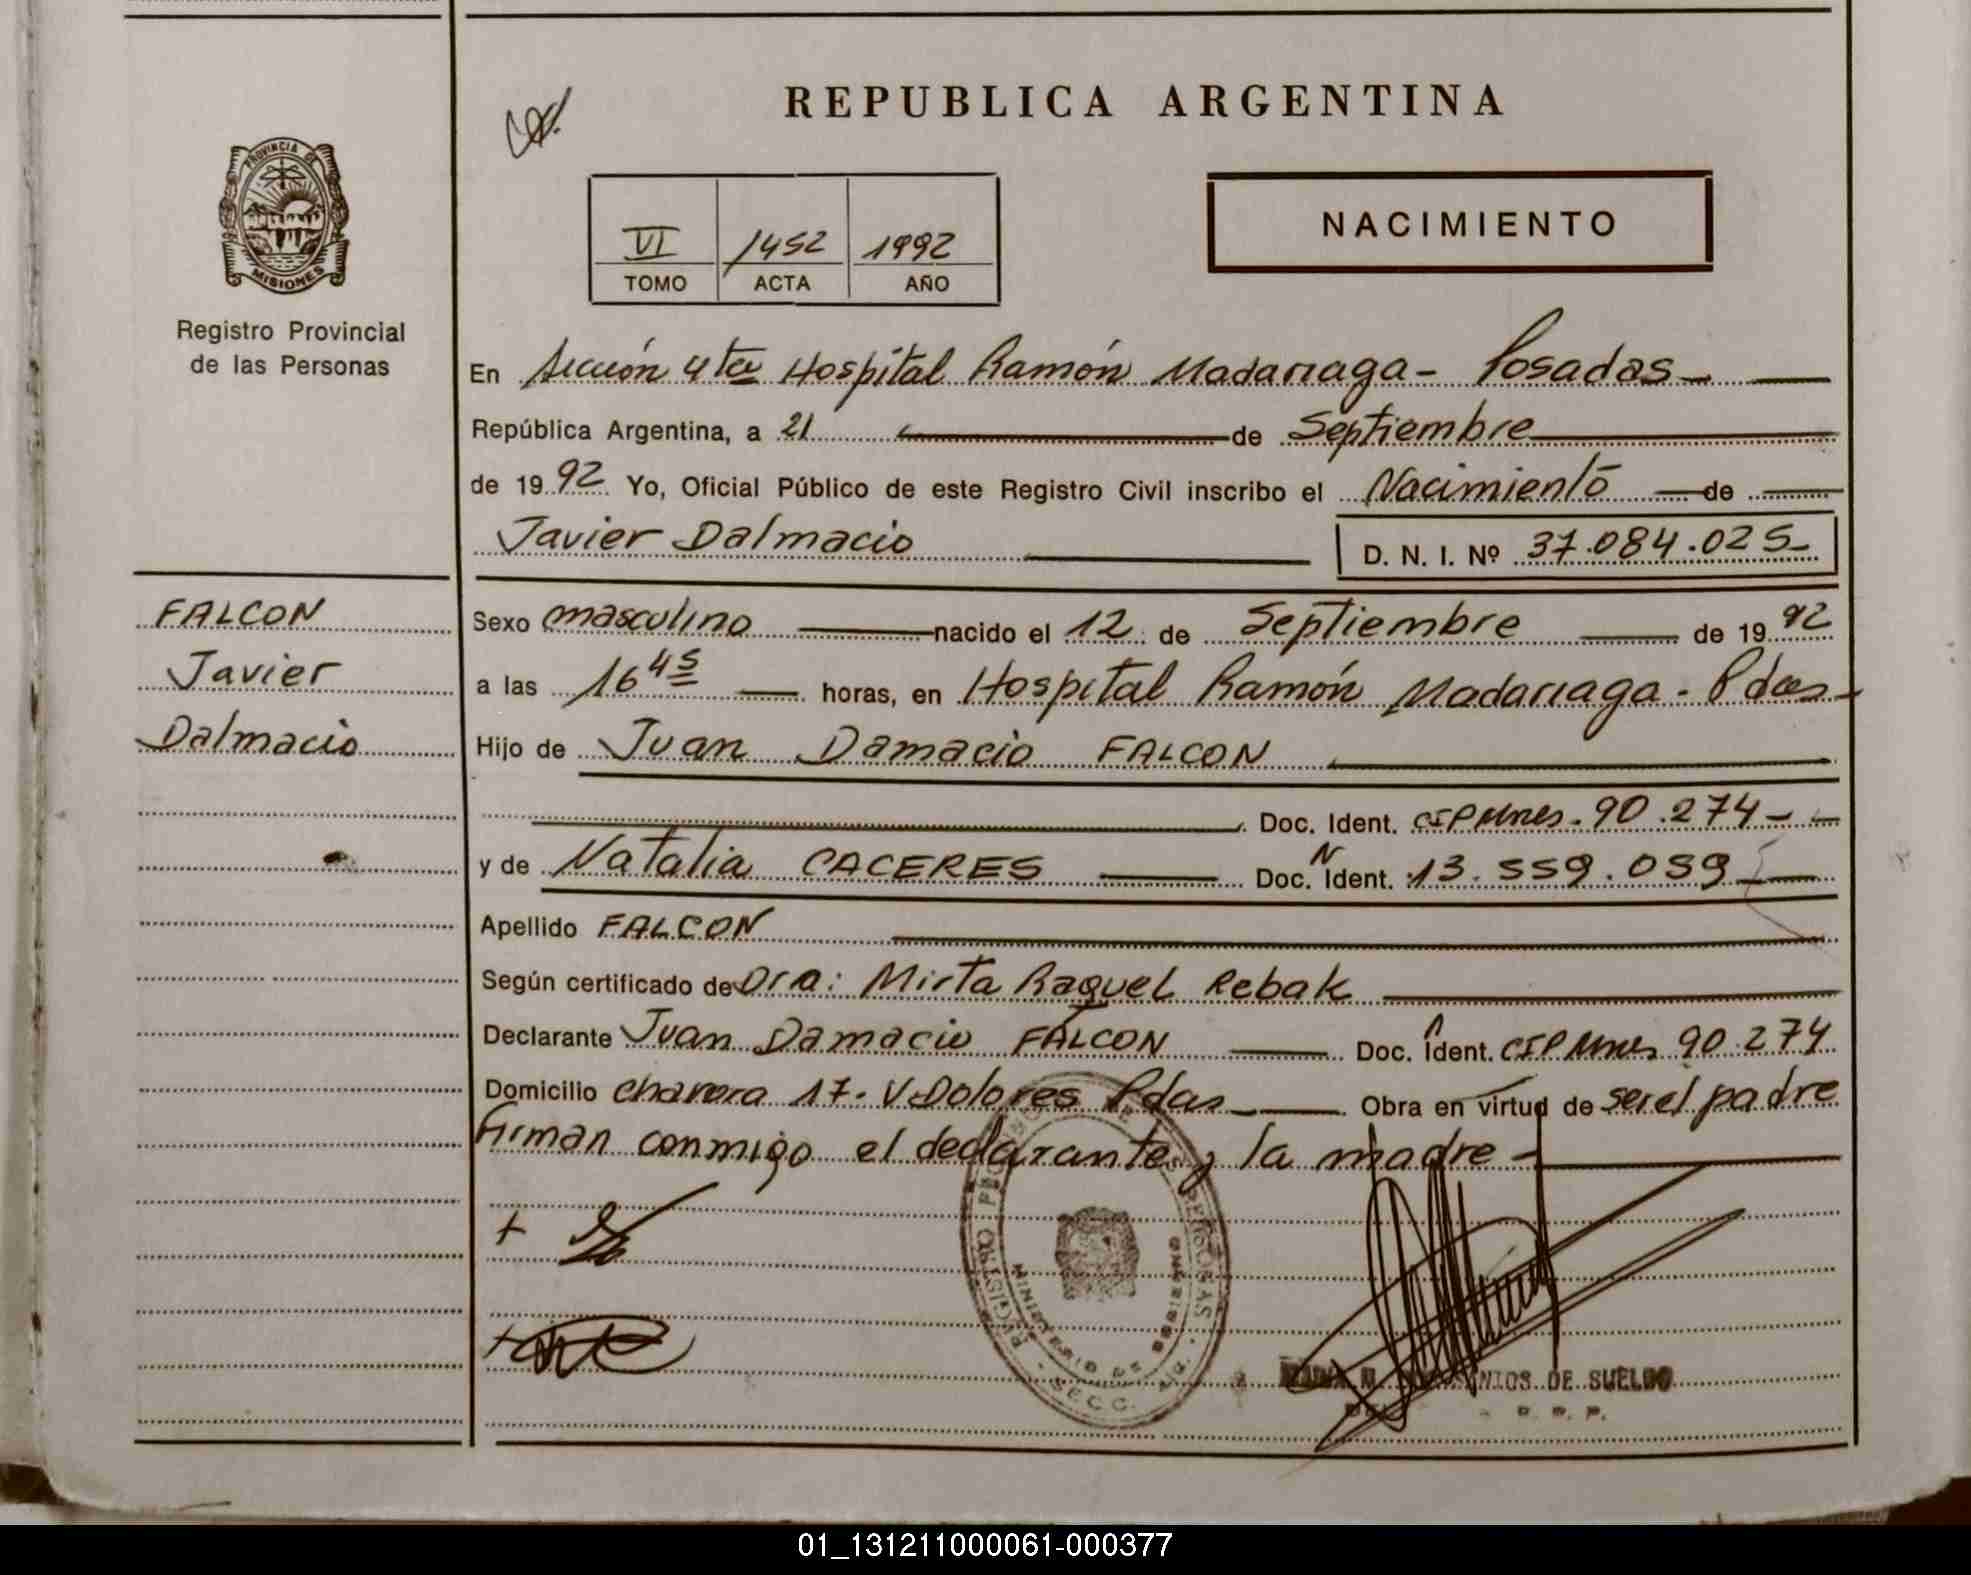 REPUBLICA ARGENTINA
PROVINCIA DE
MISIONES
Registro Provincial
de las Personas
VI 1452 1992
TOMO ACTA AÑO
NACIMIENTO
En Sección 4ta Hospital Ramón Madariaga - Posadas -
República Argentina, a 21 de Septiembre
de 1992 Yo, Oficial Público de este Registro Civil inscribo el Nacimiento de
Javier Dalmacio D. N. I. Nº 37.084.025-
FALCON
Javier
Dalmacio
Sexo masculino nacido el 12 de Septiembre de 1992
a las 16 45 horas, en Hospital Ramón Madariaga - Pdas -
Hijo de Juan Damacio FALCON
Doc. Ident. CIPMnes - 90.274 -
y de Natalia CACERES Doc. N Ident. 13.559.039
Apellido FALCON
Según certificado de Dra: Mirta Raquel Rebak
Declarante Juan Damacio FALCON Doc. Ident. CIPMnes 90.274
Domicilio chacra 17 - V. Dolores Pdas - Obra en virtud de ser el padre
firman conmigo el declarante y la madre -
REGISTRO PERSONAS
MINISTERIO DE GOBIERNO
SECC.
DE SUELDO
R. P. P.
01_131211000061-000377